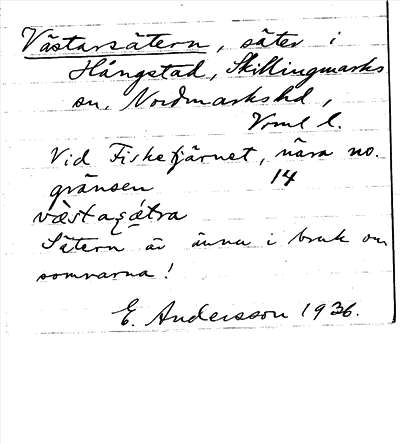 Västarsätern, säter i
Hångstad, Skillingmarks
sn, Nordmarks hd,
Vrml l.
Vid Fisketjärnet, nära no.
gränsen 14
væstaʂǽtra
Sätern är ännu i bruk om
somrarna!
E. Andersson 1936.